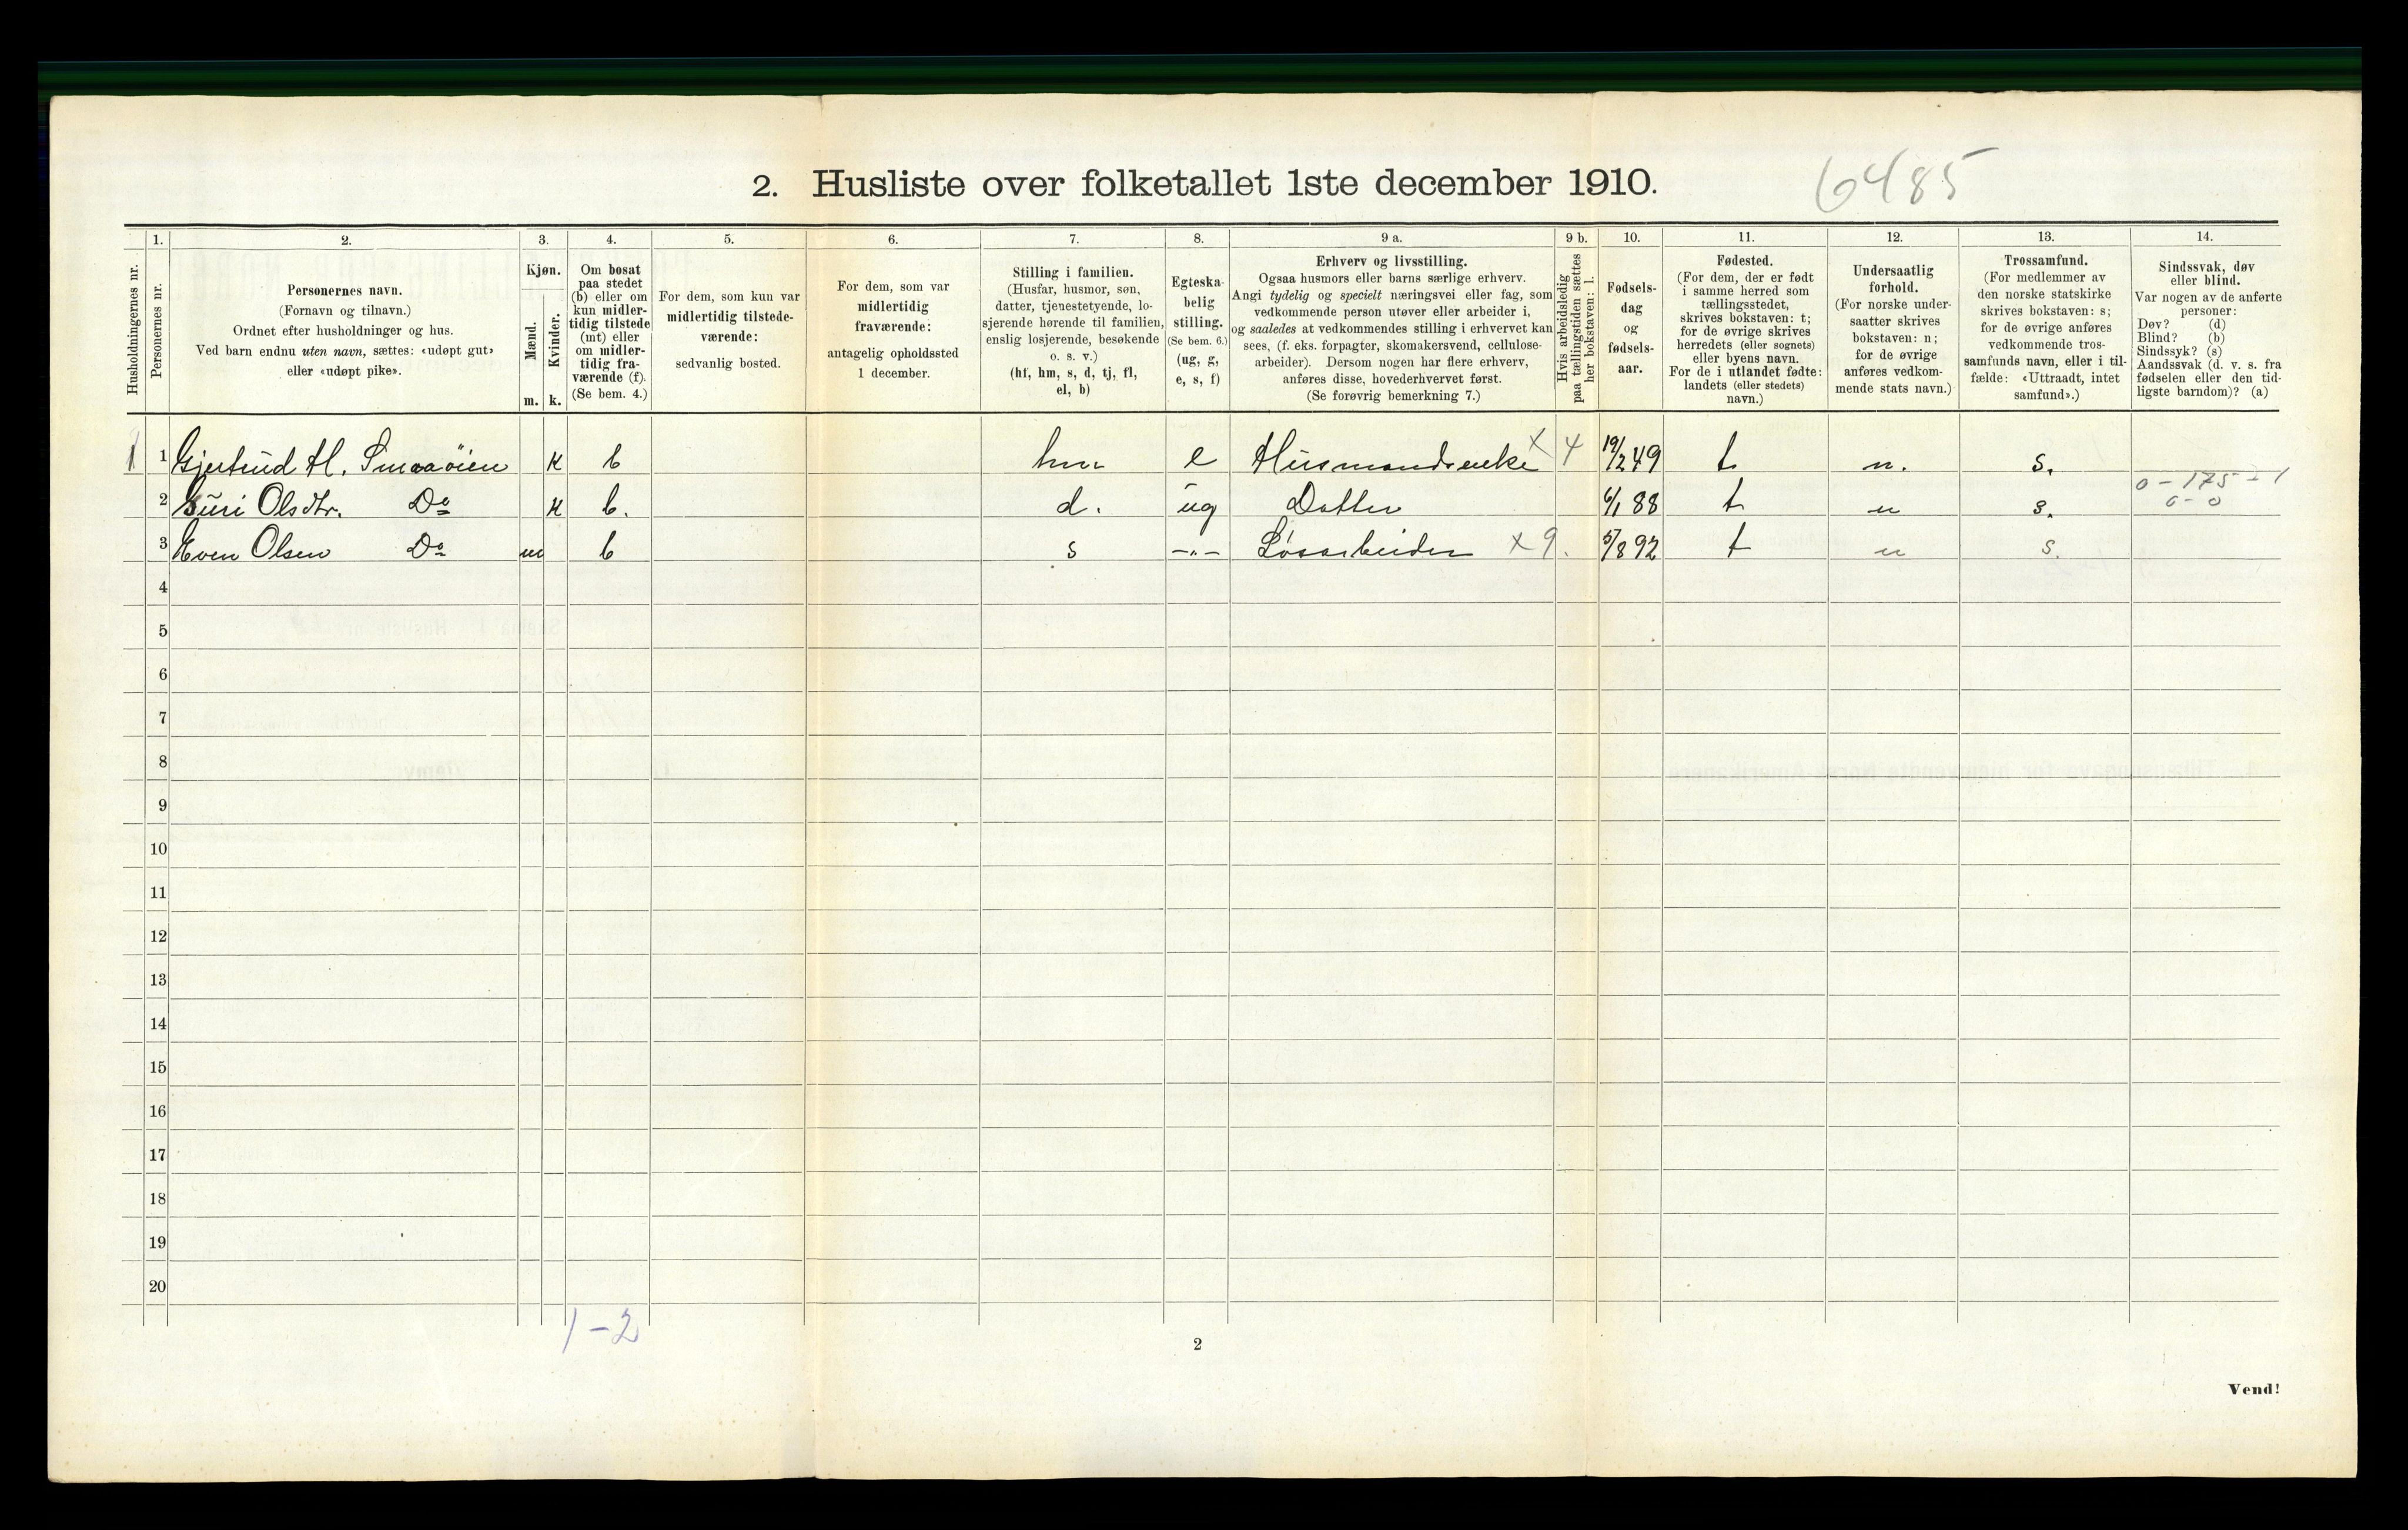 2. Husliste over folketallet 1ste december 1910.
6485
Husholdningernes nr.
1.
Personernes nr.
2.
Personernes navn.
(Fornavn og tilnavn.)
Ordnet efter husholdninger og hus.
Ved barn endnu uten navn, sættes: «udøpt gut»
eller «udøpt pike».
3.
Kjøn.
Mænd.
Kvinder.
m. k.
4.
Om bosat
paa stedet
(b) eller om
kun midler-
tidig tilstede
(mt) eller
om midler-
tidig fra-
værende (f).
(Se bem. 4.)
5.
For dem, som kun var
midlertidig tilstede-
værende:
sedvanlig bosted.
6.
For dem, som var
midlertidig
fraværende:
antagelig opholdssted
1 december.
7.
Stilling i familien.
(Husfar, husmor, søn,
datter, tjenestetyende, lo-
sjerende hørende til familien,
enslig losjerende, besøkende
o. s. v.)
(hf, hm, s, d, tj, fl,
el, b)
8.
Egteska-
belig
stilling.
(Se bem. 6.)
(ug, g,
e, s, f)
9 a.
Erhverv og livsstilling.
Ogsaa husmors eller barns særlige erhverv.
Angi tydelig og specielt næringsvei eller fag, som
vedkommende person utøver eller arbeider i,
og saaledes at vedkommendes stilling i erhvervet kan
sees, (f. eks. forpagter, skomakersvend, cellulose-
arbeider). Dersom nogen har flere erhverv,
anføres disse, hovederhvervet først.
(Se forøvrig bemerkning 7.)
9 b.
Hvis arbeidsledig
paa tællingstiden sættes
her bokstaven: l.
10.
Fødsels-
dag
og
fødsels-
aar.
11.
Fødested.
(For dem, der er født
i samme herred som
tællingsstedet,
skrives bokstaven: t;
for de øvrige skrives
herredets (eller sognets)
eller byens navn.
For de i utlandet fødte:
landets (eller stedets)
navn.)
12.
Undersaatlig
forhold.
(For norske under-
saatter skrives
bokstaven: n;
for de øvrige
anføres vedkom-
mende stats navn.)
13.
Trossamfund.
(For medlemmer av
den norske statskirke
skrives bokstaven: s;
for de øvrige anføres
vedkommende tros-
samfunds navn, eller i til-
fælde: «Uttraadt, intet
samfund».)
14.
Sindssvak, døv
eller blind.
Var nogen av de anførte
personer:
Døv? (d)
Blind? (b)
Sindssyk? (s)
Aandssvak (d. v. s. fra
fødselen eller den tid-
ligste barndom)? (a)
1 1 Gjertrud H. Smaaøien k b hm e Husmandsenke x 4 19/2 49 t n. s.
0 - 175 - 1
2 Guri Olsdtr. Do k b. d. ug Datter 6/1 88 t n s. 0 - 0
3 Even Olsen Do m b s -"- Løsarbeider x 9. 5/8 92 t n s.
4
5
6
7
8
9
10
11
12
13
14
15
16
17
18
19
20
1 - 2
2
Vend!